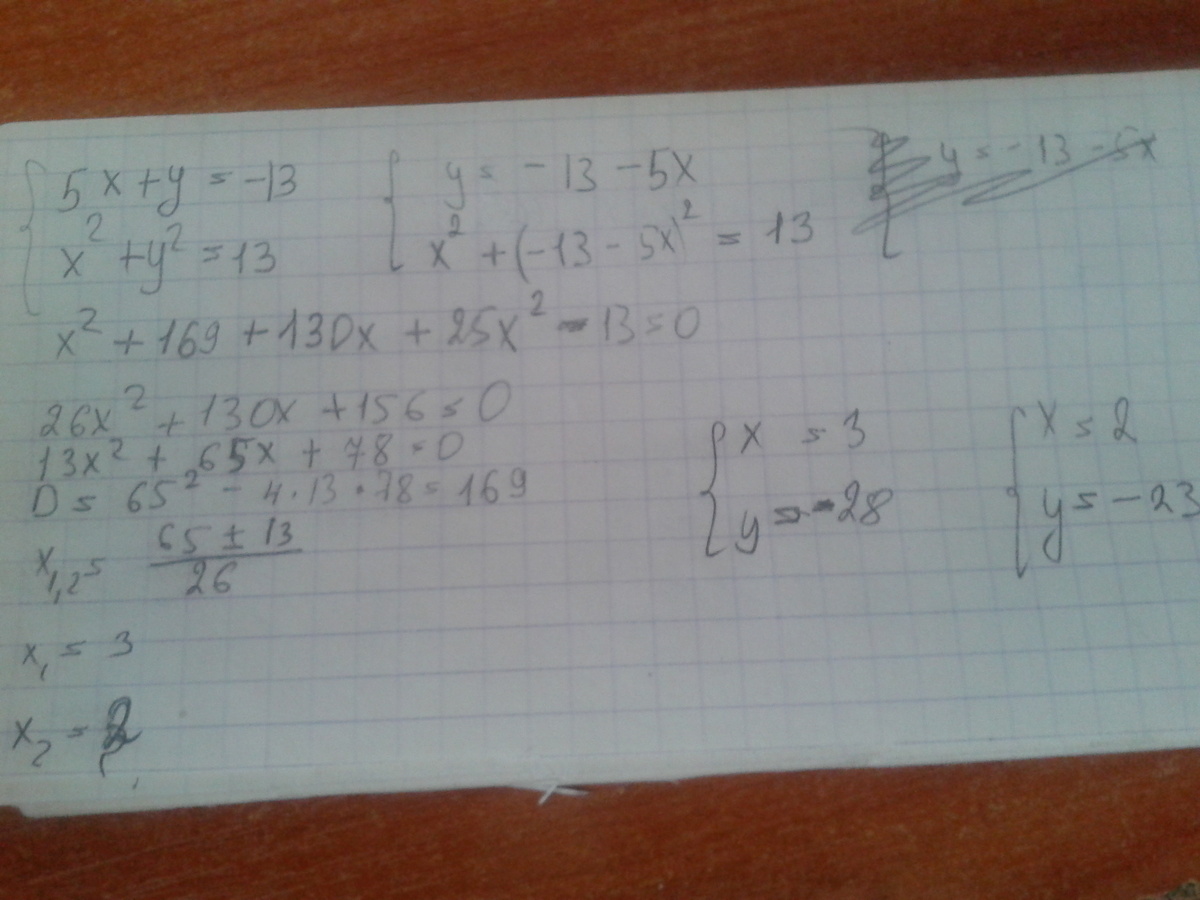 { 5x + y = -13   { y = -13 - 5x   { y = -13 - 5x
x² + y² = 13   x² + (-13 - 5x)² = 13
x² + 169 + 130x + 25x² - 13 = 0
26x² + 130x + 156 = 0
13x² + 65x + 78 = 0
D = 65² - 4·13·78 = 169
x₁,₂ = (65 ± 13)/26
x₁ = 3
x₂ = 2
{ x = 3   { x = 2
y = -28   y = -23